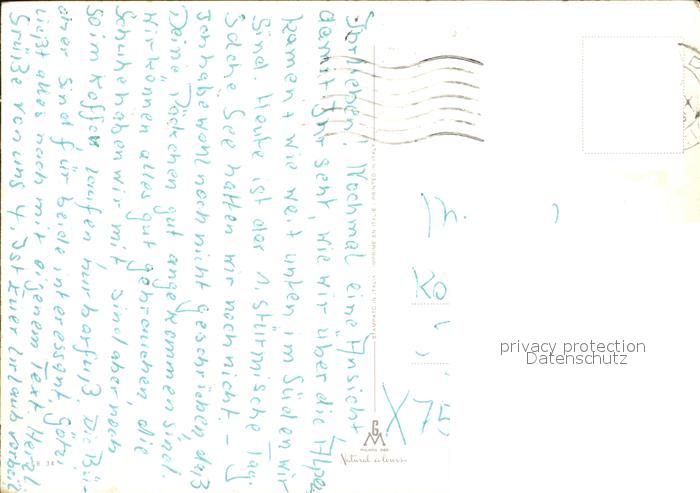 Ihr Lieben! Nochmal eine Ansicht
damit Ihr seht, wie wir über die Alpe
kamen + wie weit unten im Süden wir
sind. Heute ist der 1. stürmische Tag
Solche See hatten wir noch nicht. –
Ich habe wohl noch nicht geschrieben, daß
Deine Päckchen gut angekommen sind.
Wir können alles gut gebrauchen, die
Schuhe haben wir mit sind aber noch
so im Koffer laufen nur barfuß. Die Bü-
cher sind für beide interessant, Götzi
ließt alles noch mit eigenem Text. Herzl
Grüße von uns 4. Ist Euer Urlaub vorbei
STAMPATO IN ITALIA - IMPRIMÉ EN ITALIE - PRINTED IN ITALY
Ko
X 75
privacy protection
Datenschutz
GM
Natural colours
34